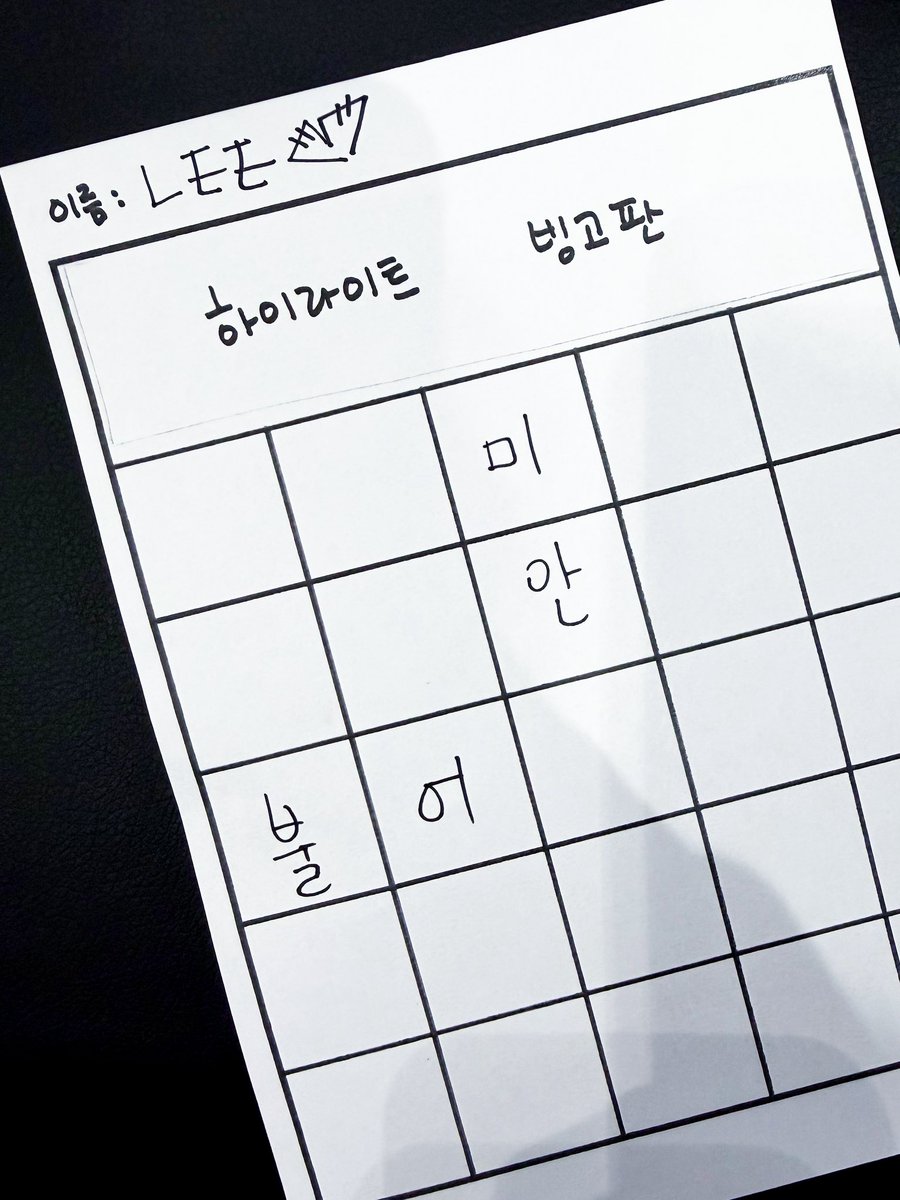 이름: LEE
하이라이트 빙고판
미
안
불 어